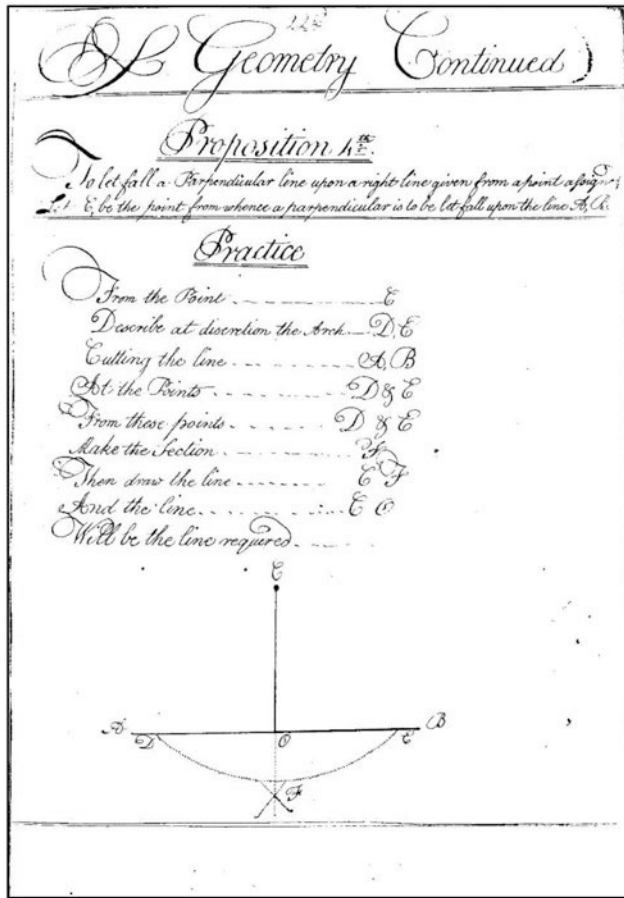 Of Geometry Continued
Proposition 4th.
To let fall a Parpendicular line upon a right line given from a point
Let C, be the point from whence a parpendicular is to be let fall upon the line A, B.
Practice
From the Point - - - - - C
Describe at discretion the Arch - - D, E
Cutting the line - - - - A, B
At the Points - - - - - D & E
From these points - - - - D & E
Make the Section - - - - - F
Then draw the line - - - - - C F
And the line - - - - - C O
Will be the line required - - - -
C
A B
D O E
F